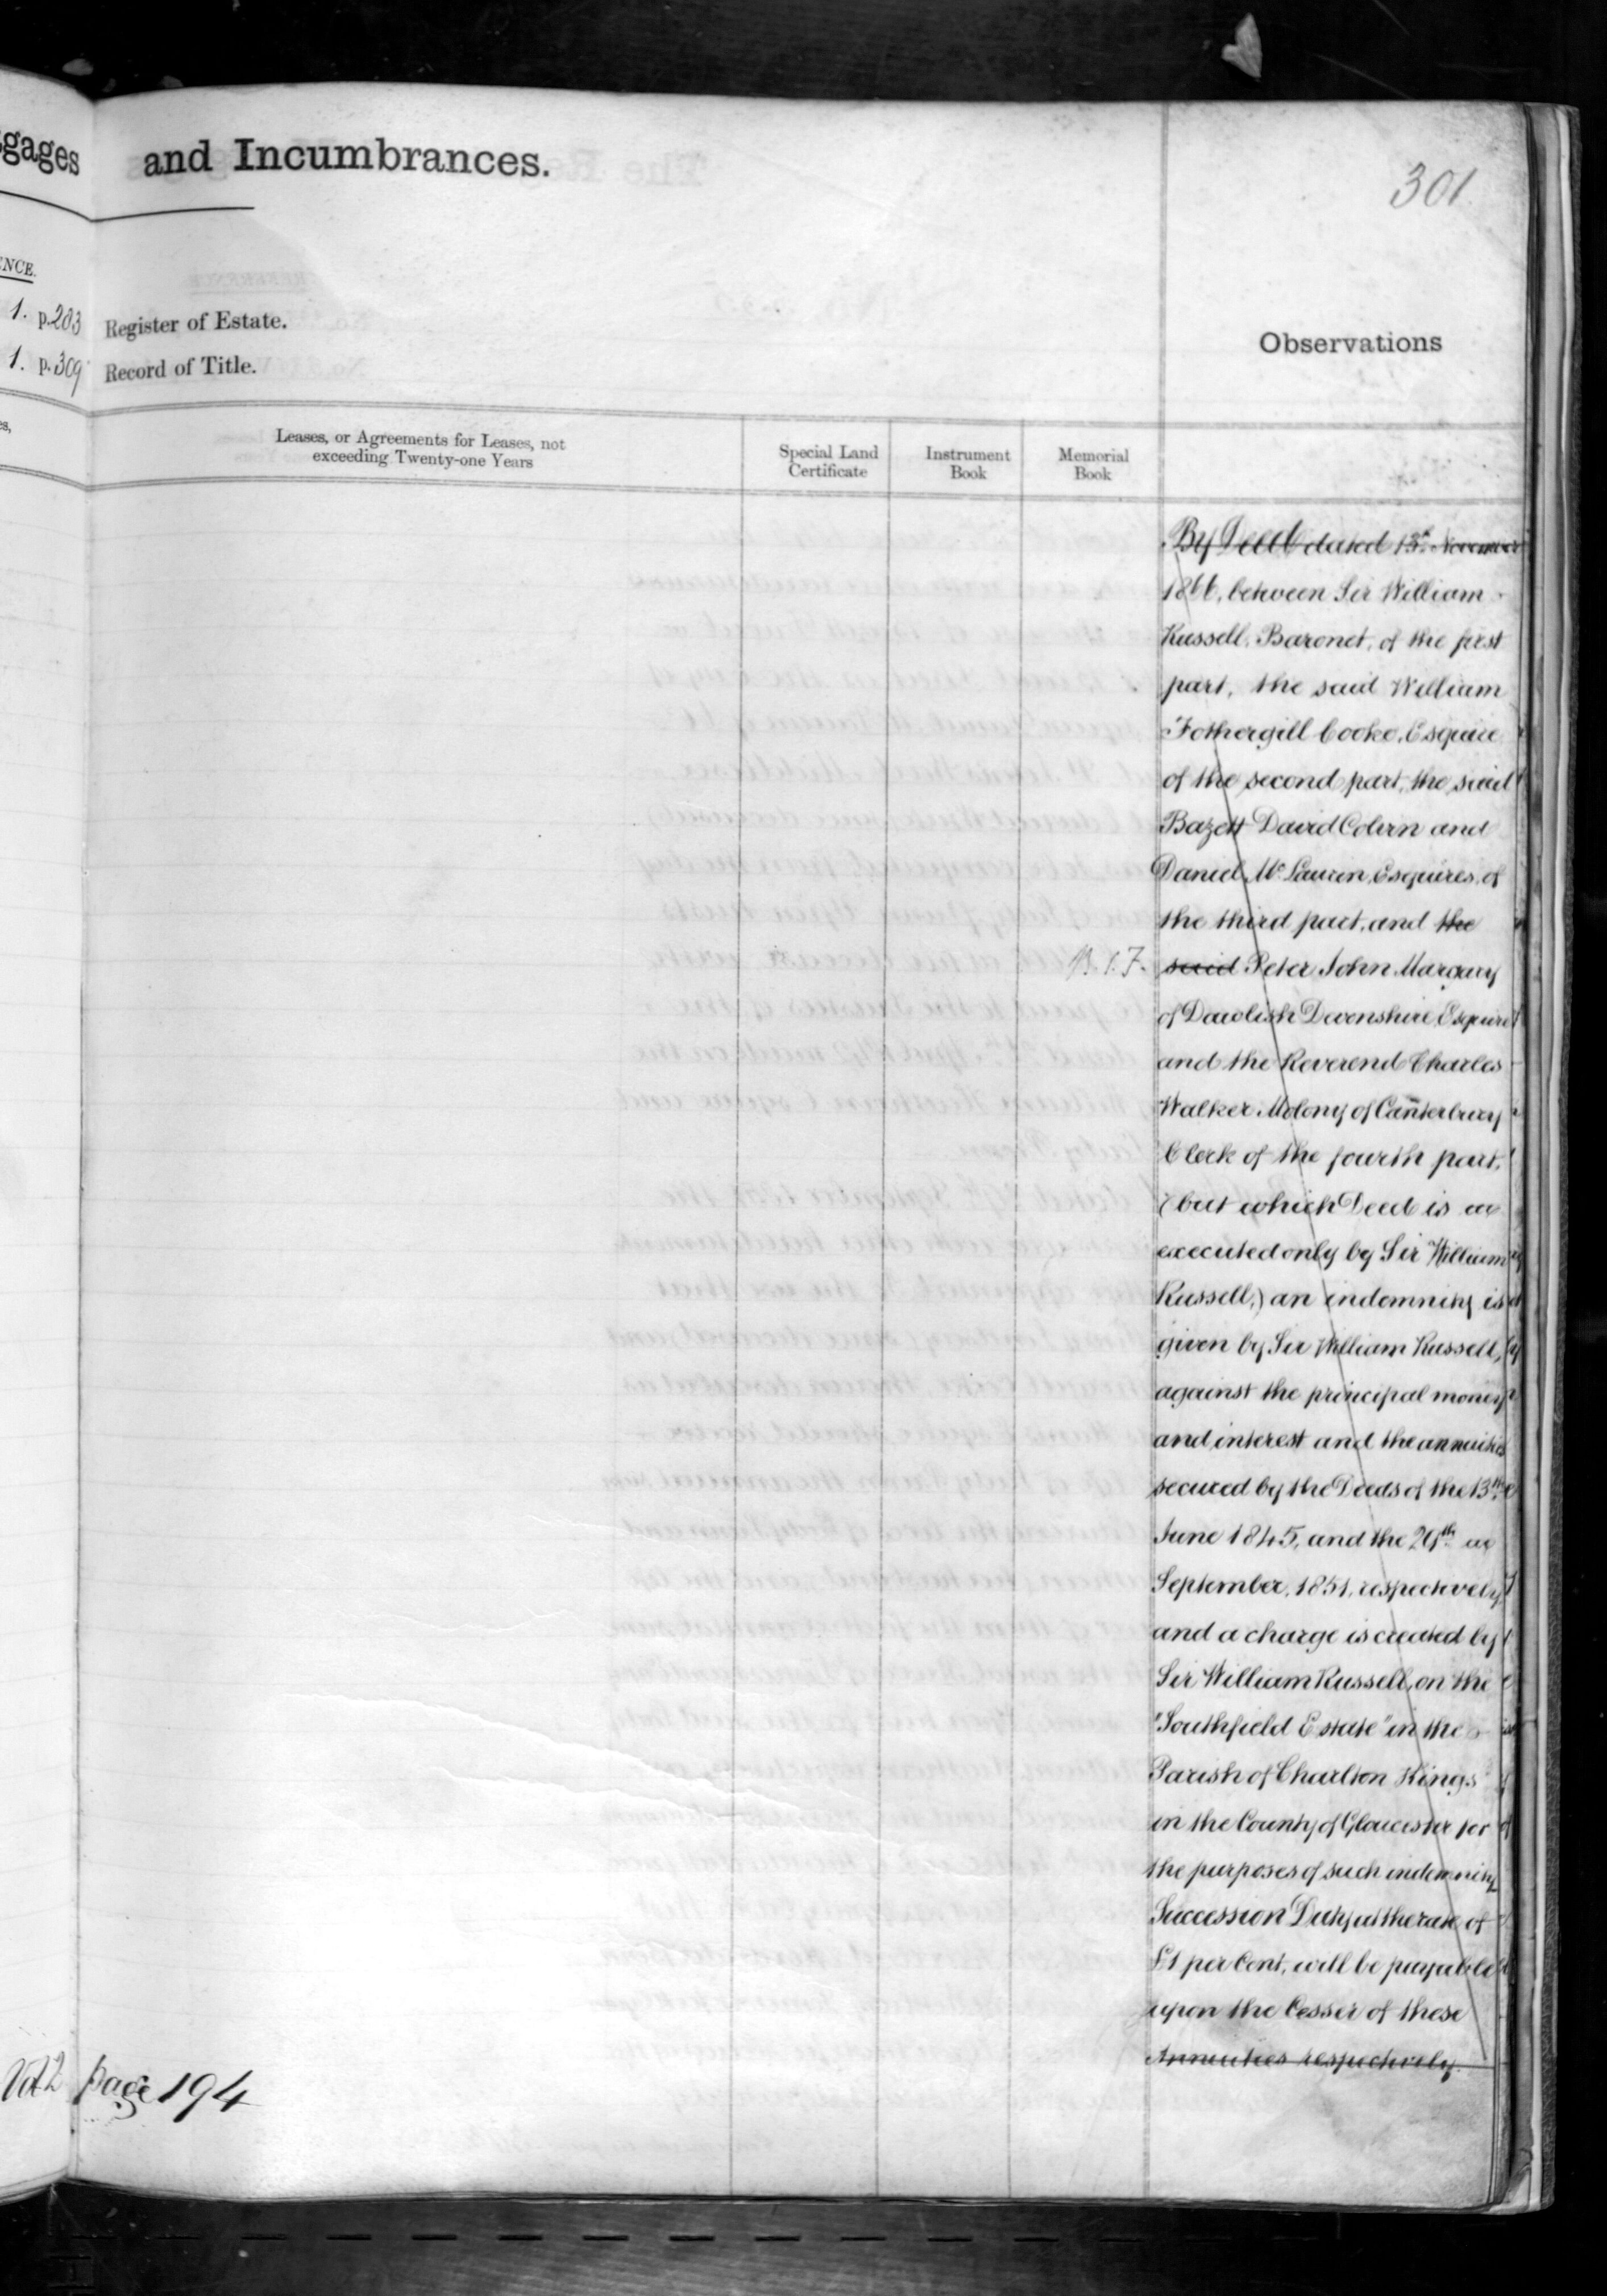 gages and Incumbrances.
301.
ENCE.
1. p.203 Register of Estate.
1. p.309 Record of Title.
Observations
es,
Leases, or Agreements for Leases, not
exceeding Twenty-one Years
Special Land
Certificate
Instrument
Book
Memorial
Book
By Deed dated 13th November
1866, between Sir William
Russell, Baronet, of the first
part, the said William
Fothergill Cooke, Esquire
of the second part, the said
Bazett David Colvin and
Daniel Mc Laurin, Esquires, of
the third part, and the
said Peter John Margary
of Dawlish Devonshire, Esquire
and the Reverend Charles
Walker Molony of Canterbury
Clerk of the fourth part,
(but which Deed is
executed only by Sir William
Russell,) an indemnity is
given by Sir William Russell,
against the principal money
and interest and the annuities
secured by the Deeds of the 13th
June 1845, and the 29th
September, 1851, respectively
and a charge is created by
Sir William Russell, on the
"Southfield Estate" in the
Parish of Charlton Kings
in the County of Gloucester for
the purposes of such indemnity
Succession Duty at the rate of
£1 per Cent, will be payable
upon the Cesser of these
Annuities respectively.
Vol 2 page 194